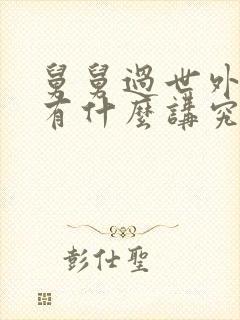 舅舅過世外
有什麼講究
彭仕聖